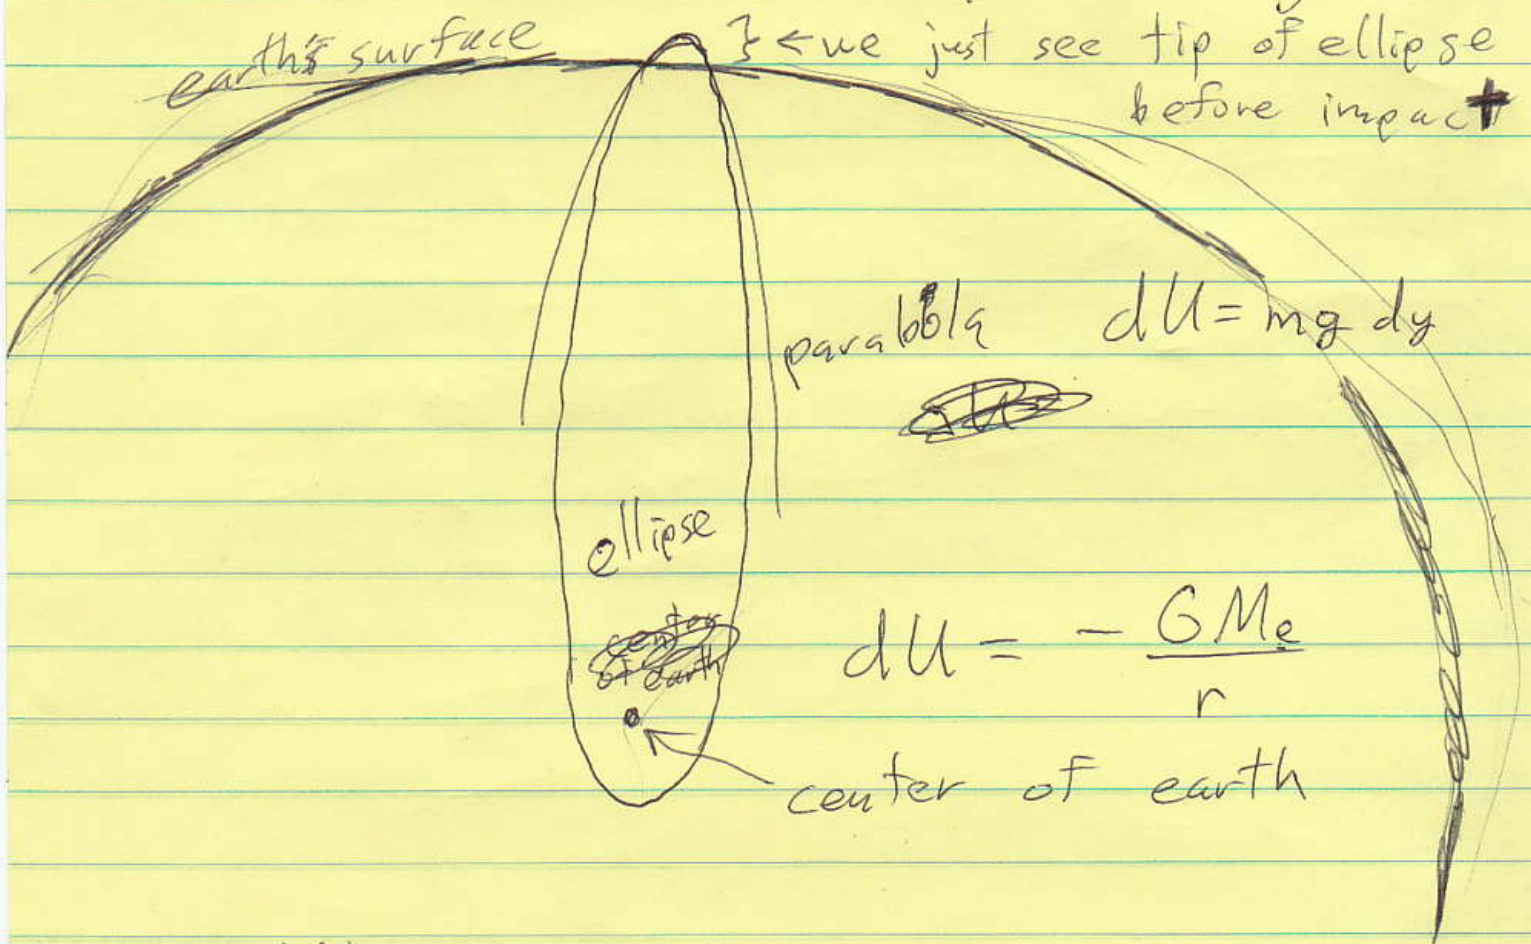 earth's surface
}←we just see tip of ellipse
before impact
parabola dU = mg dy
ellipse
center
of earth
dU = - GMe
r
center of earth